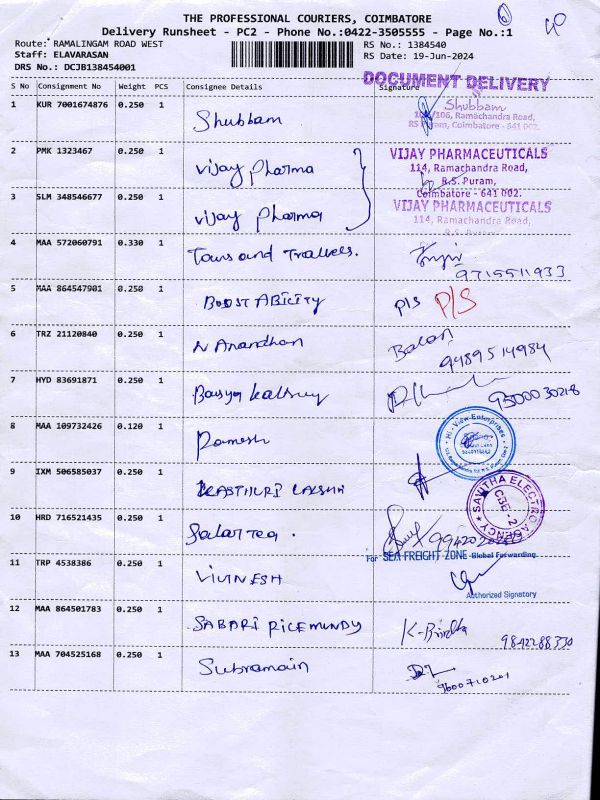 THE PROFESSIONAL COURIERS, COIMBATORE
Delivery Runsheet - PC2 - Phone No.:0422-3505555 - Page No.:1
Route: RAMALINGAM ROAD WEST
Staff: ELAVARASAN
DRS No.: DCJB138454001
RS No.: 1384540
RS Date: 19-Jun-2024
DOCUMENT DELIVERY
S No Consignment No Weight PCS Consignee Details Signature
1 KUR 7001674876 0.250 1 Shubbam Shubbam
106, Ramachandra Road,
RS Puram, Coimbatore - 641 002.
2 PMK 1323467 0.250 1 Vijay Pharma VIJAY PHARMACEUTICALS
114, Ramachandra Road,
R.S. Puram,
Coimbatore - 641 002.
3 SLM 348546677 0.250 1 Vijay Pharma VIJAY PHARMACEUTICALS
114, Ramachandra Road,
R.S. Puram
4 MAA 572060791 0.330 1 Tours and Travels. 9715511933
5 MAA 864547901 0.250 1 BOOST ABILITY P/S P/S
6 TRZ 21120840 0.250 1 N Anandhan Balan 9489514984
7 HYD 83691871 0.250 1 9500030218
8 MAA 109732426 0.120 1 Ramesh Hi-View Enterprises
9 IXM 506585037 0.250 1 KASTHURI LAKSHMI SAVITHA ELECTRO AGENCY
CBE-2
10 HRD 716521435 0.250 1 Salar tea.
For SEA FREIGHT ZONE Global Forwarding
11 TRP 4538386 0.250 1 VIVINESH
Authorized Signatory
12 MAA 864501783 0.250 1 SABARI RICEMUNDY K-Bindha 9842288330
13 MAA 704525168 0.250 1 Subramain 9600710201